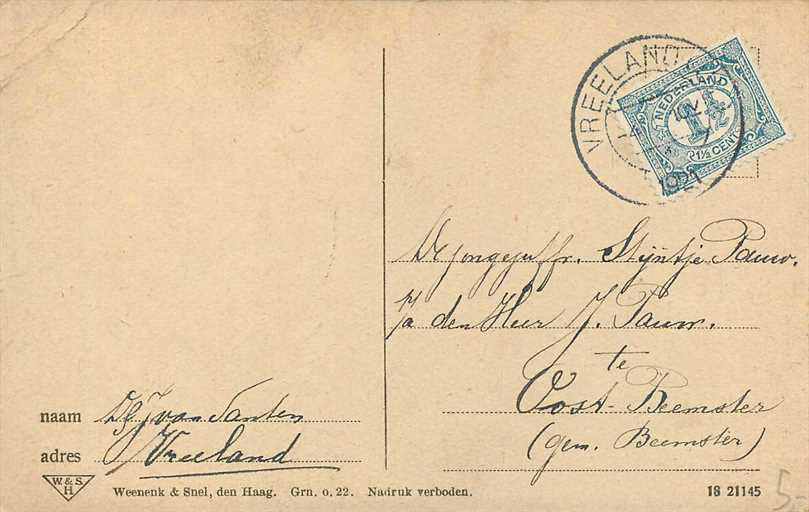 VREELAND
1921
NEDERLAND
1½
1½ CENT
De jongejuffr. Stijntje Pauw.
p/a den Heer J. Pauw.
te
Oost-Beemster
(gem. Beemster)
naam van Santen
adres Vreeland
W. & S.
H
Weenenk & Snel, den Haag. Grn. o. 22. Nadruk verboden.
18 21145
5-